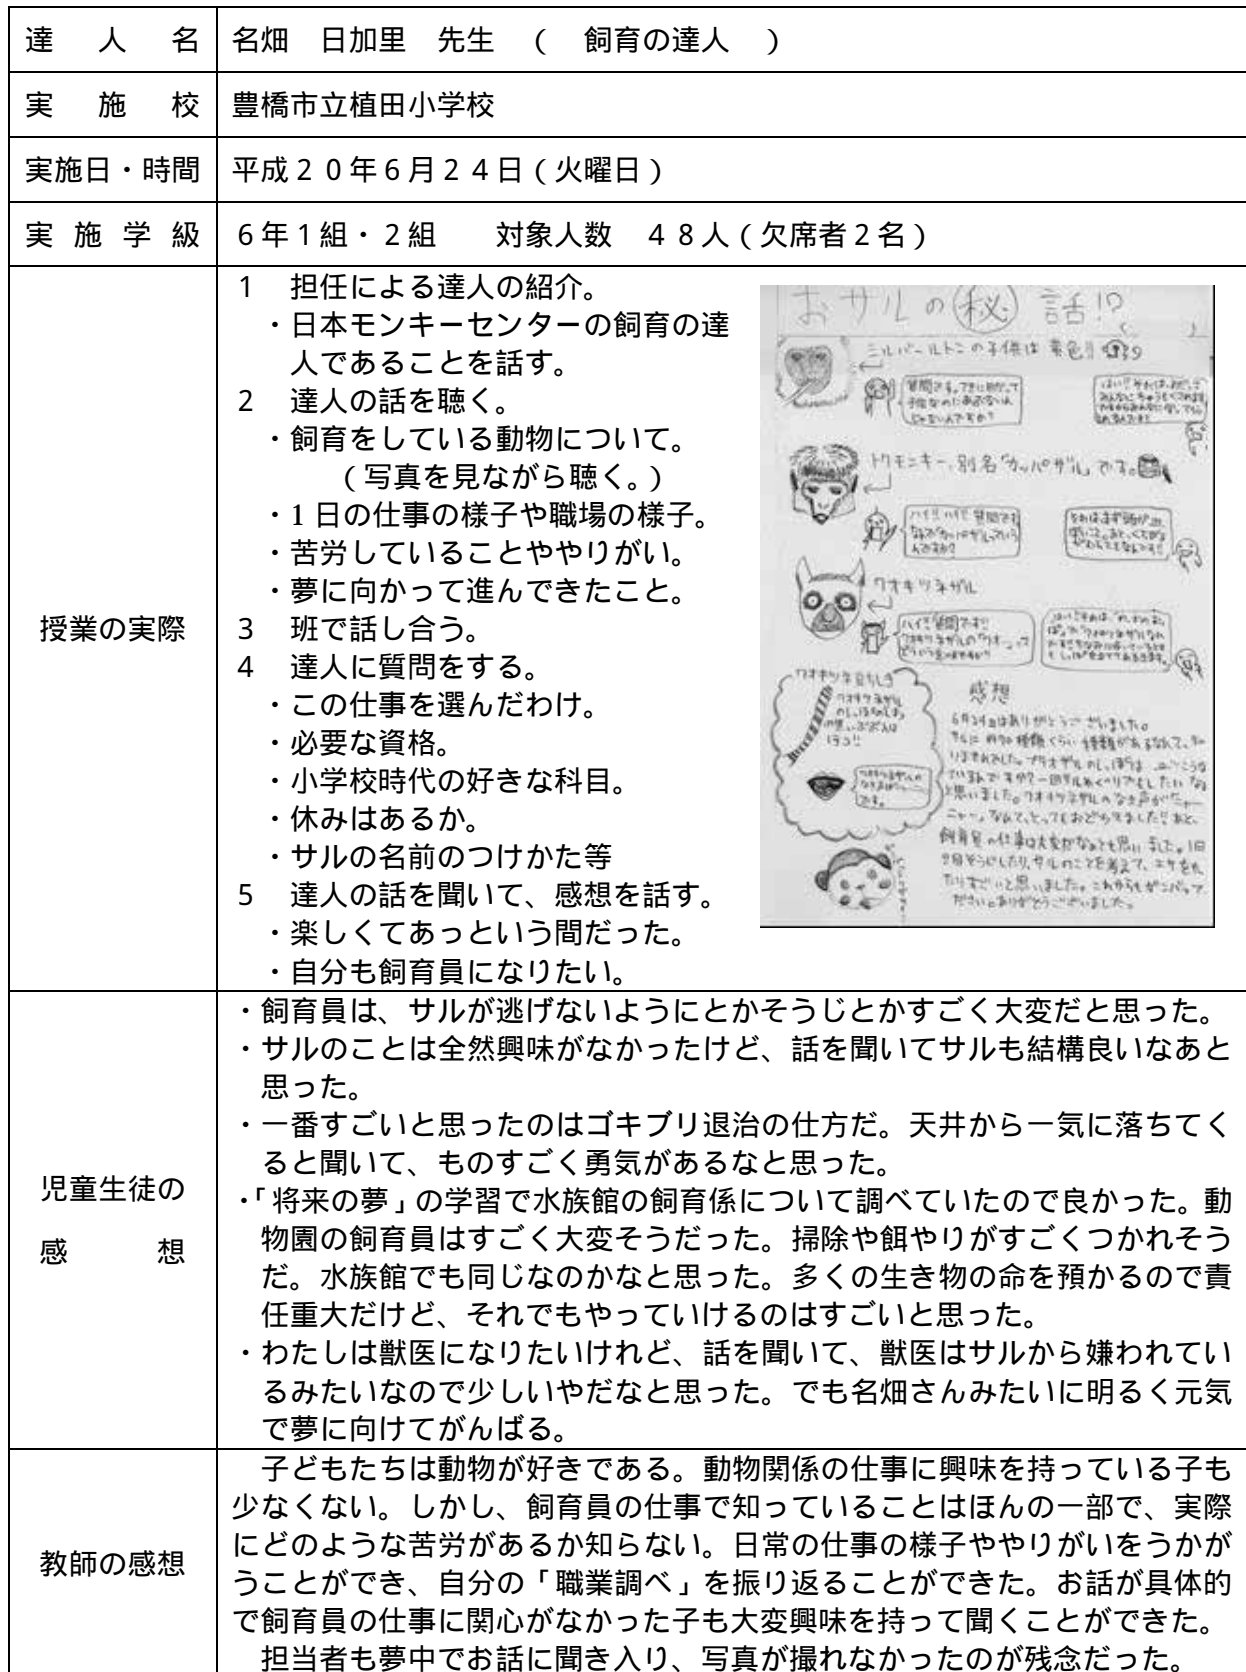 達人名 名畑 日加里 先生 ( 飼育の達人 )
実施校 豊橋市立植田小学校
実施日・時間 平成20年6月24日(火曜日)
実施学級 6年1組・2組 対象人数 48人(欠席者2名)
授業の実際
1 担任による達人の紹介。
・日本モンキーセンターの飼育の達
人であることを話す。
2 達人の話を聴く。
・飼育をしている動物について。
(写真を見ながら聴く。)
・1日の仕事の様子や職場の様子。
・苦労していることややりがい。
・夢に向かって進んできたこと。
3 班で話し合う。
4 達人に質問をする。
・この仕事を選んだわけ。
・必要な資格。
・小学校時代の好きな科目。
・休みはあるか。
・サルの名前のつけかた等
5 達人の話を聞いて、感想を話す。
・楽しくてあっという間だった。
・自分も飼育員になりたい。
おサルの㊙話!?
シルバールトンの子供は黄色!!
トクモンキー、別名「カッパザル」です。
ワオキツネザル
感想
6月24日はありがとうございました。
児童生徒の
感想
・飼育員は、サルが逃げないようにとかそうじとかすごく大変だと思った。
・サルのことは全然興味がなかったけど、話を聞いてサルも結構良いなあと
思った。
・一番すごいと思ったのはゴキブリ退治の仕方だ。天井から一気に落ちてく
ると聞いて、ものすごく勇気があるなと思った。
・「将来の夢」の学習で水族館の飼育係について調べていたので良かった。動
物園の飼育員はすごく大変そうだった。掃除や餌やりがすごくつかれそう
だ。水族館でも同じなのかなと思った。多くの生き物の命を預かるので責
任重大だけど、それでもやっていけるのはすごいと思った。
・わたしは獣医になりたいけれど、話を聞いて、獣医はサルから嫌われてい
るみたいなので少しいやだなと思った。でも名畑さんみたいに明るく元気
で夢に向けてがんばる。
教師の感想
子どもたちは動物が好きである。動物関係の仕事に興味を持っている子も
少なくない。しかし、飼育員の仕事で知っていることはほんの一部で、実際
にどのような苦労があるか知らない。日常の仕事の様子ややりがいをうかが
うことができ、自分の「職業調べ」を振り返ることができた。お話が具体的
で飼育員の仕事に関心がなかった子も大変興味を持って聞くことができた。
担当者も夢中でお話に聞き入り、写真が撮れなかったのが残念だった。